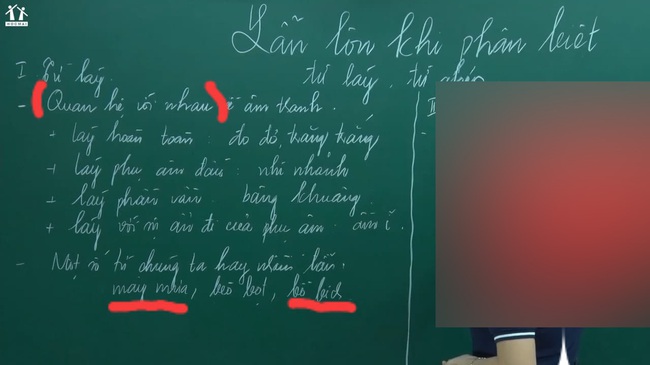 HOCMAI
Lẫn lộn khi phân biệt
từ láy, từ ghép
I Từ láy.
- Quan hệ với nhau về âm thanh.
+ láy hoàn toàn: đo đỏ, trăng trắng
+ láy phụ âm đầu: nhí nhảnh
+ láy phần vần: bâng khuâng
+ láy với sự ẩn đi của phụ âm: ầm ĩ.
- Một số từ chúng ta hay nhầm lẫn.
may mắn, bèo bọt,
II